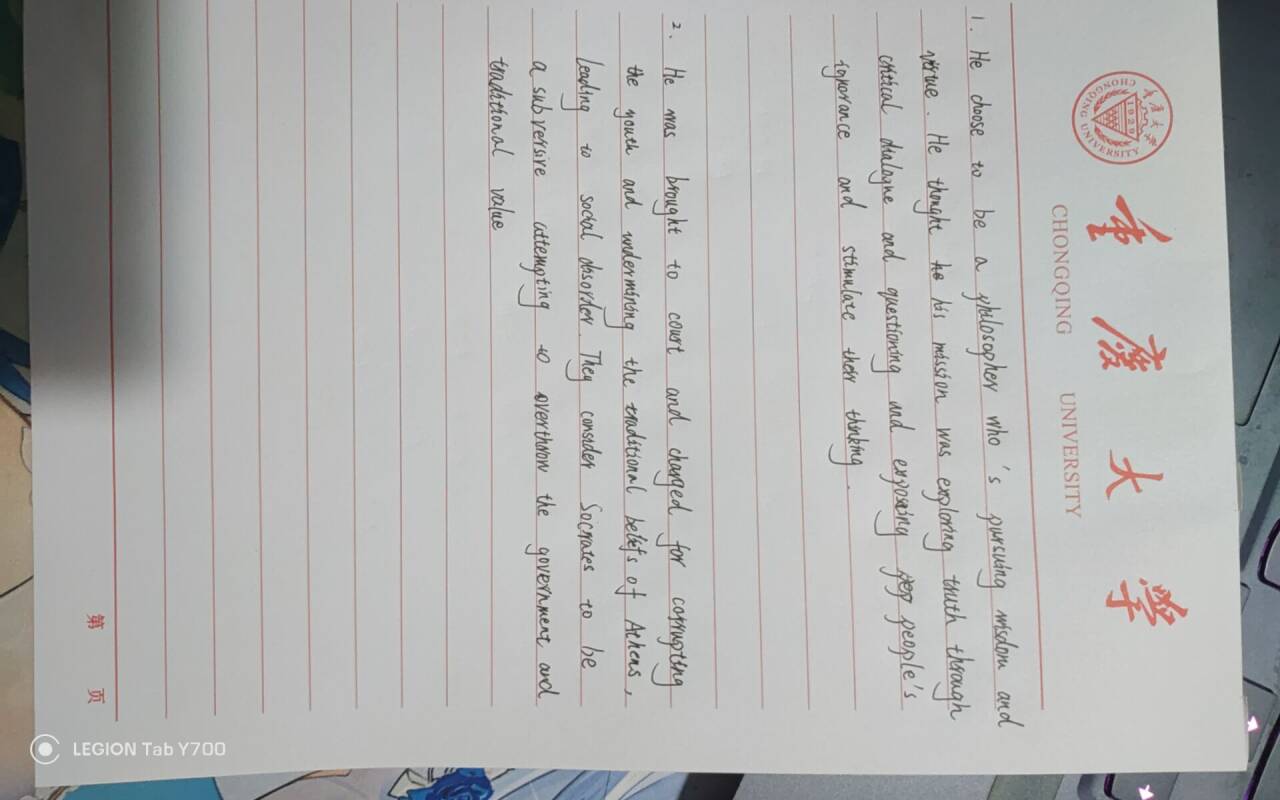 重庆大学
CHONGQING UNIVERSITY
重庆大学
1929
CHONGQING UNIVERSITY
1. He choose to be a philosopher who 's pursuing wisdom and
virtue. He thought he his mission was exploring truth through
critical dialogue and questioning and exposing peo people's
ignorance and stimulate their thinking.
2. He was brought to court and charged for corrupting
the youth and undermining the traditional beliefs of Athens,
leading to social disorder. They consider Socrates to be
a subversive attempting to overthrow the government and
traditional value
第 页
LEGION Tab Y700